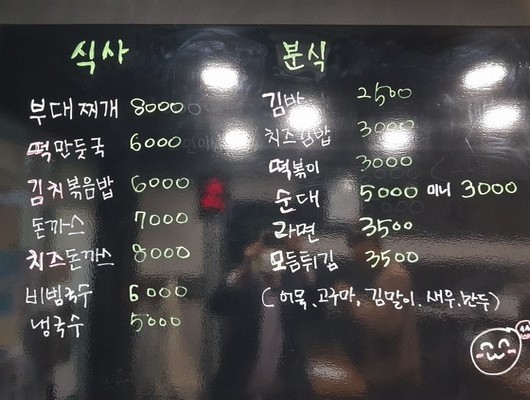 식사
부대찌개 8000
떡만둣국 6000
김치볶음밥 6000
돈까스 7000
치즈돈까스 8000
비빔국수 6000
냉국수 5000
분식
김밥 2500
치즈김밥 3000
떡볶이 3000
순대 5000 미니 3000
라면 3500
모듬튀김 3500
(어묵, 고구마, 김말이, 새우, 만두)